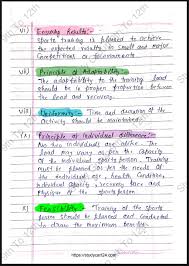 vi) Ensures Results:-
Sports training is planned to achieve
the expected results in small and major
Competitions or tournaments.
vii) Principle of Adaptability:-
The adaptability to the training load
should be in proper proportion between
the load and recovery.
viii) Uniformity:- Time and duration of the
Activity should be maintained.
ix) Principle of Individual difference:-
No two individuals are alike. The
load may vary as per the capacity
of the individual sports person. Training
must be planned as per the needs of
the individual, age, health condition,
Individual capacity, recovery pace and
Physique of the sports person.
x) Feasibility:- Training of the sports
person should be planned and conducted
to draw the maximum benefit.
https://studywit24.com